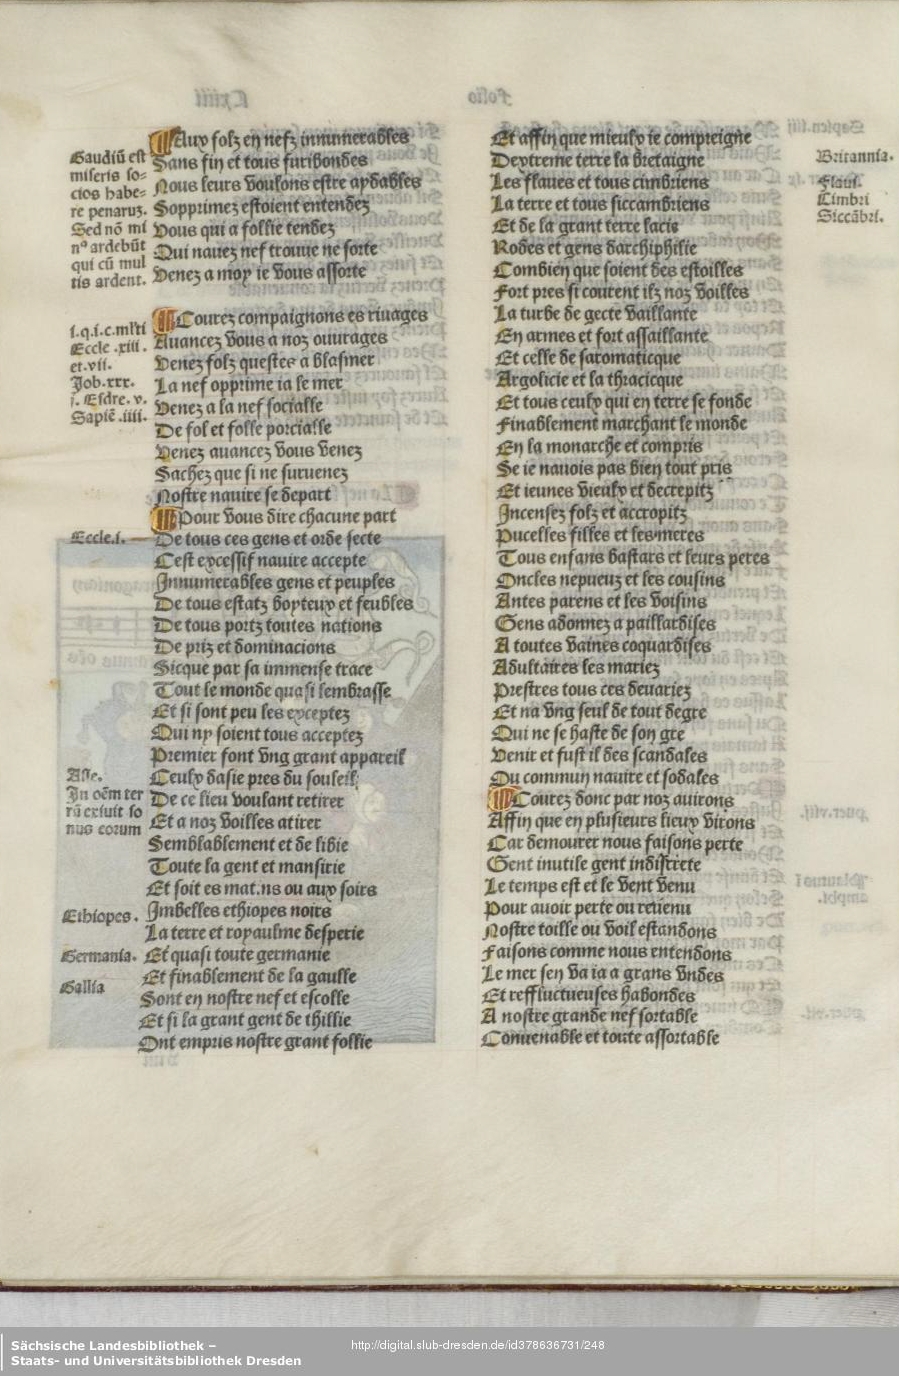 Aux folz en nefz innumerables
Sans fin et tous furibondes
Nous leurs voulons estre aydables
Sopprimez estoient entendez
Vous qui a follie tendez
Qui navez nef trouue ne sorte
Venez a moy ie vous assorte
Courez compaignons es riuages
Auancez vous a noz ouurages
Venez folz questes a blasmer
La nef opprime ia le mer
Venez a la nef socialle
De fol et folle porcialle
Venez auancez vous venez
Sachez que si ne suruenez
Nostre nauire se depart
Pour vous dire chacune part
De tous ces gens et orde secte
Cest excessif nauire accepte
Innumerables gens et peuples
De tous estatz boyteux et feubles
De tous portz toutes nations
De priz et dominacions
Sicque par sa immense trace
Tout le monde quasi lembrasse
Et si sont peu les exceptez
Qui ny soient tous acceptez
Premier font vng grant appareil
Ceulx dasie pres du souleil
De ce lieu voulant retirer
Et a noz voilles atirer
Semblablement et de libie
Toute la gent et mansirie
Et soit es mat.ns ou aux soirs
Imbelles ethiopes noirs
La terre et royaulme desperie
Et quasi toute germanie
Et finablement de la gaulle
Sont en nostre nef et escolle
Et si la grant gent de thillie
Ont empris nostre grant follie
Gaudiū est
miseris so=
cios habe=
re penarum.
Sed nō mi
nº ardebūt
qui cū mul
tis ardent.
i.q.i.c.ml'ti
Eccle .xiii.
et.vii.
Job.xxx.
i. Esdre. v.
Sapiē .iiii.
Eccle.i.
Asie.
In oēm ter
rā exiuit so
nus eorum
Ethiopes.
Germania.
Gallia
Et affin que mieulx ie compreigne
Dextreme terre la bretaigne
Les flaues et tous cimbriens
La terre et tous siccambriens
Et de la grant terre lacie
Rodes et gens darchiphilie
Combien que soient des estoilles
Fort pres si courent ilz noz voilles
La turbe de gecte vaillante
En armes et fort assaillante
Et celle de saromaticque
Argolicie et la thracicque
Et tous ceulx qui en terre se fonde
Finablement marchant le monde
En la monarche et compris
Se ie nauois pas bien tout pris
Et ieunes vieulx et decrepitz
Incensez folz et accropitz
Pucelles filles et les meres
Tous enfans bastars et leurs peres
Oncles nepueuz et les cousins
Antes parens et les voisins
Gens adonnez a paillardises
A toutes vaines coquardises
Adultaires les mariez
Prestres tous ces deuariez
Et na vng seul de tout degre
Qui ne se haste de son gre
Venir et fust il des scandales
Du commun nauire et sodales
Courez donc par noz auirons
Affin que en plusieurs lieux virons
Car demourer nous faisons perte
Gent inutile gent indiscrete
Le temps est et le vent venu
Pour auoir perte ou reuenu
Nostre toille ou voil estandons
Faisons comme nous entendons
Le mer sen va ia a grans vndes
Et reffluctueuses habondes
A nostre grande nef sortable
Conuenable et toute assortable
Britannia.
Flaui.
Cimbri
Siccābri.
Sächsische Landesbibliothek –
Staats- und Universitätsbibliothek Dresden
http://digital.slub-dresden.de/id378636731/248